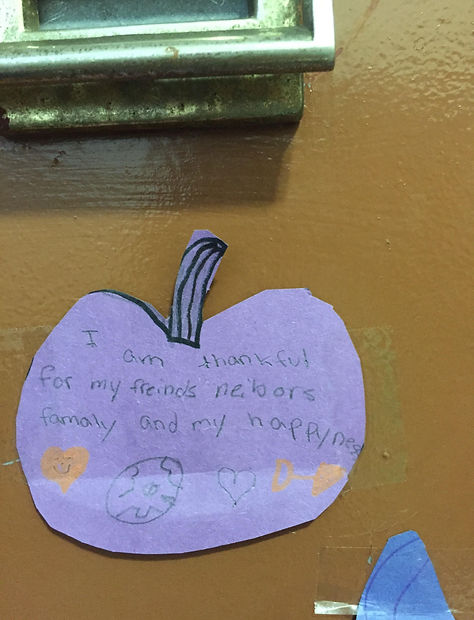 I am thankful
for my freinds neibors
famaly and my happynes